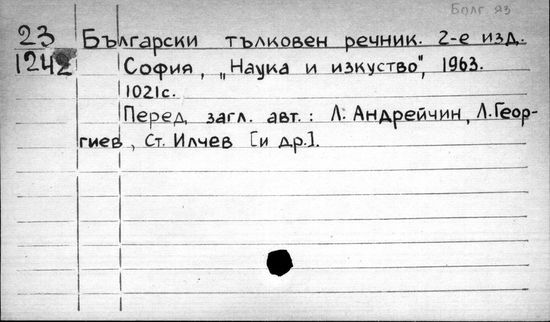 Болг яз
23 Български тълковен речник. 2-е изд.
1242 София, „Наука и изкуство", 1963.
1021с.
Перед загл. авт.: Л. Андрейчин, Л. Геор-
гиев, Ст. Илчев [и др.].